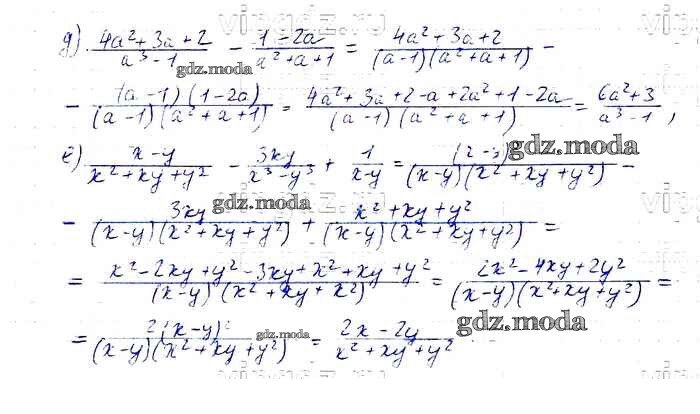 vipgdz.ru vipgdz.ru
д) (4a² + 3a + 2)/(a³ - 1) - (1 - 2a)/(a² + a + 1) = (4a² + 3a + 2)/((a-1)(a² + a + 1)) -
gdz.moda
- ((a - 1)(1-2a))/((a - 1)(a² + a + 1)) = (4a² + 3a + 2 - a + 2a² + 1 - 2a)/((a - 1)(a² + a + 1)) = (6a² + 3)/(a³ - 1),
е) (x-y)/(x² + xy + y²) - (3xy)/(x³ - y³) + 1/(x-y) = /((x-y)(x² + xy + y²)) -
gdz.moda
- (3xy)/((x-y)(x² + xy + y²)) + (x² + xy + y²)/((x-y)(x² + xy + y²)) =
gdz.moda
= (x² - 2xy + y² - 3xy + x² + xy + y²)/((x-y)(x² + xy + x²)) = (2x² - 4xy + 2y²)/((x-y)(x² + xy + y²)) =
gdz.moda
= (2(x-y)²)/((x-y)(x² + xy + y²)) = (2x - 2y)/(x² + xy + y²)
gdz.moda